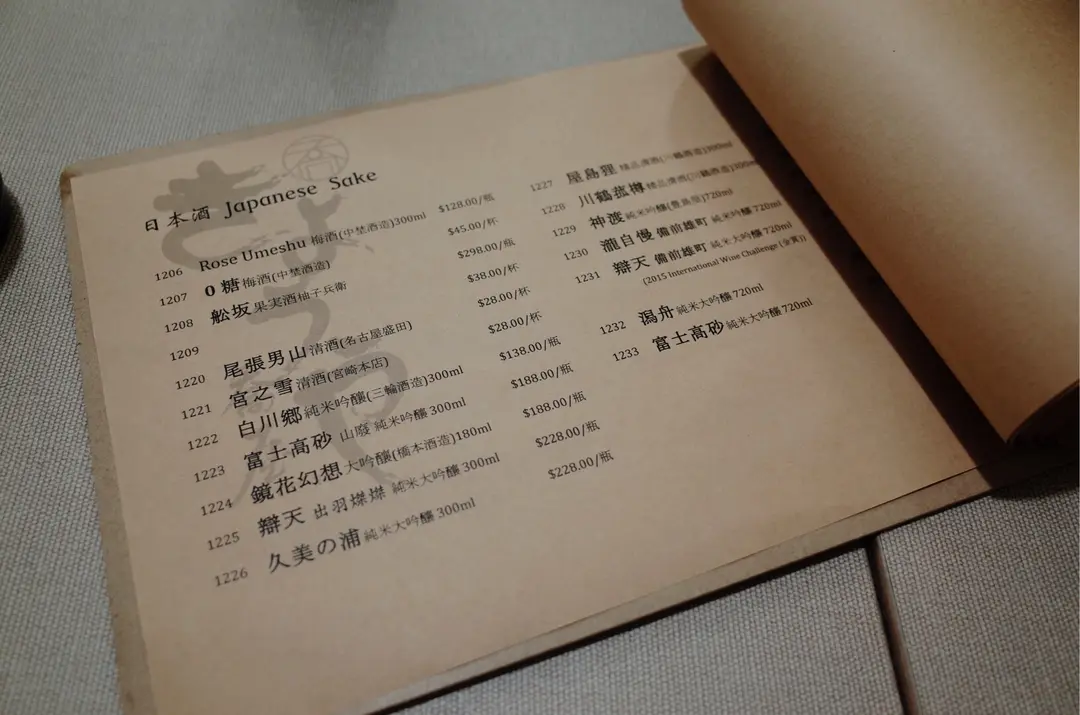 日本酒 Japanese Sake
1206 Rose Umeshu 梅酒(中埜酒造)300ml $128.00/瓶
1207 0 糖 梅酒(中埜酒造) $45.00/杯
1208 舩坂 果実酒柚子兵衛 $298.00/瓶
1209 $38.00/杯
1220 尾張男山 清酒(名古屋盛田) $28.00/杯
1221 宮之雪 清酒(宮崎本店) $28.00/杯
1222 白川郷 純米吟釀(三輪酒造)300ml $138.00/瓶
1223 富士高砂 山廢 純米吟釀 300ml $188.00/瓶
1224 鏡花幻想 大吟釀(橋本酒造)180ml $188.00/瓶
1225 辯天 出羽燦燦 純米大吟釀 300ml $228.00/瓶
1226 久美の浦 純米大吟釀 300ml $228.00/瓶
1227 屋島狸 (川鶴酒造)300ml
1228 川鶴菰樽 (川鶴酒造)300ml
1229 神渡 純米吟釀(豊島屋)720ml
1230 瀧自慢 備前雄町 純米吟釀 720ml
1231 辯天 備前雄町 純米大吟釀 720ml
(2015 International Wine Challenge (金賞))
1232 潟舟 純米大吟釀 720ml
1233 富士高砂 純米大吟釀 720ml